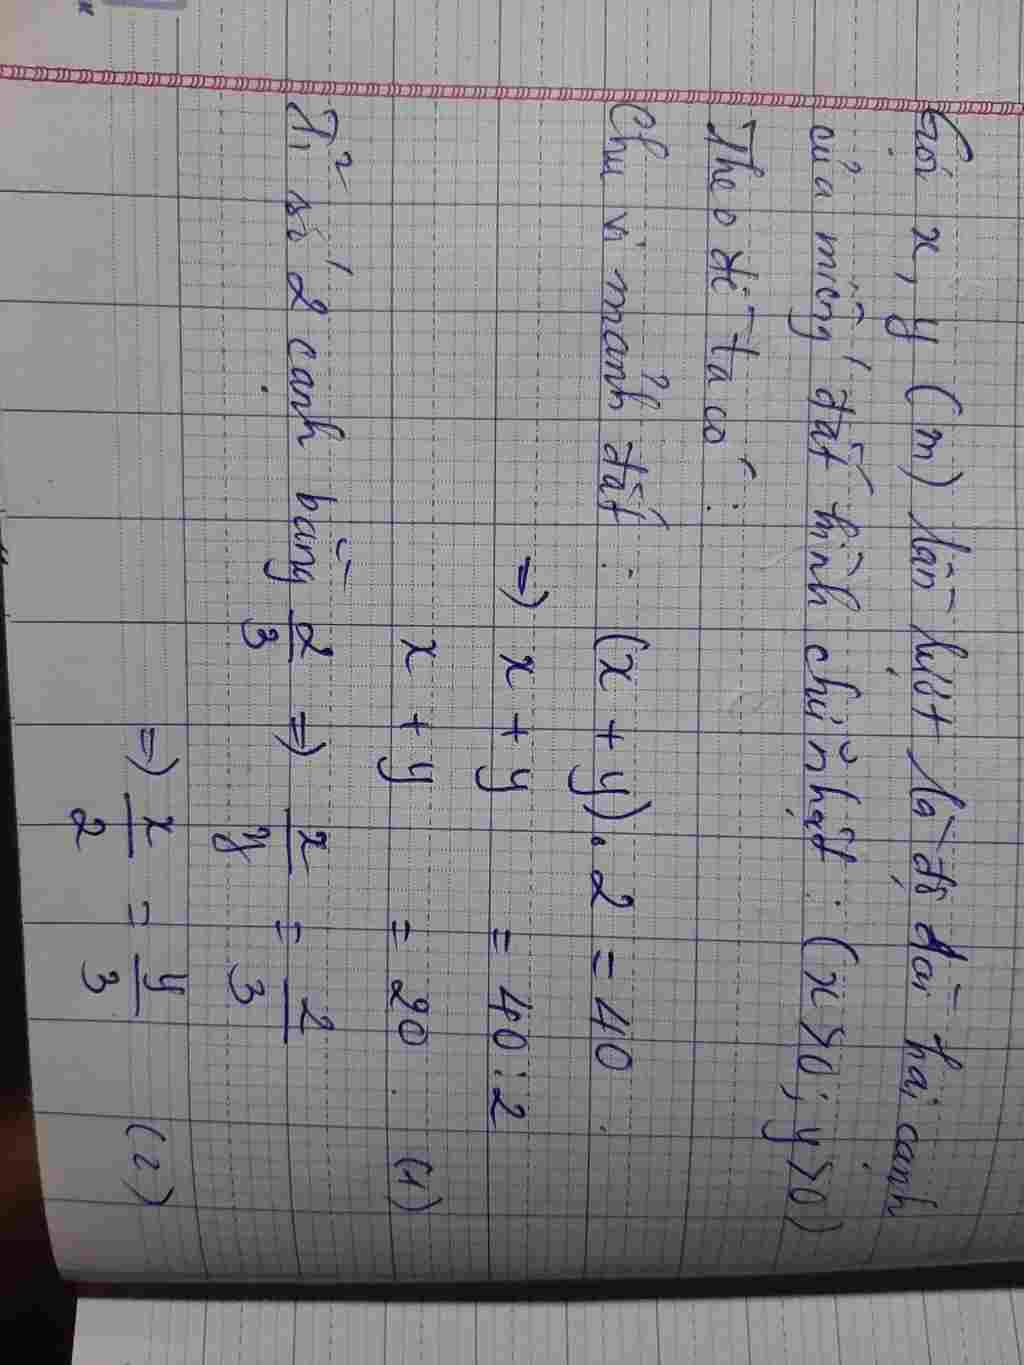 Gọi x, y (m) lần lượt là độ dài hai cạnh
của miếng đất hình chữ nhật : (x>0; y>0)
Theo đề ta có :
Chu vi mảnh đất : (x + y).2 = 40.
=> x + y = 40:2
x + y = 20. (1)
Tỉ số 2 cạnh bằng 2/3 => x/y = 2/3
=> x/2 = y/3 (2)